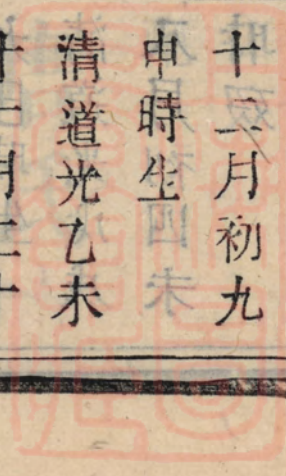 十二月初九
申時生
清道光乙未
十一月二十